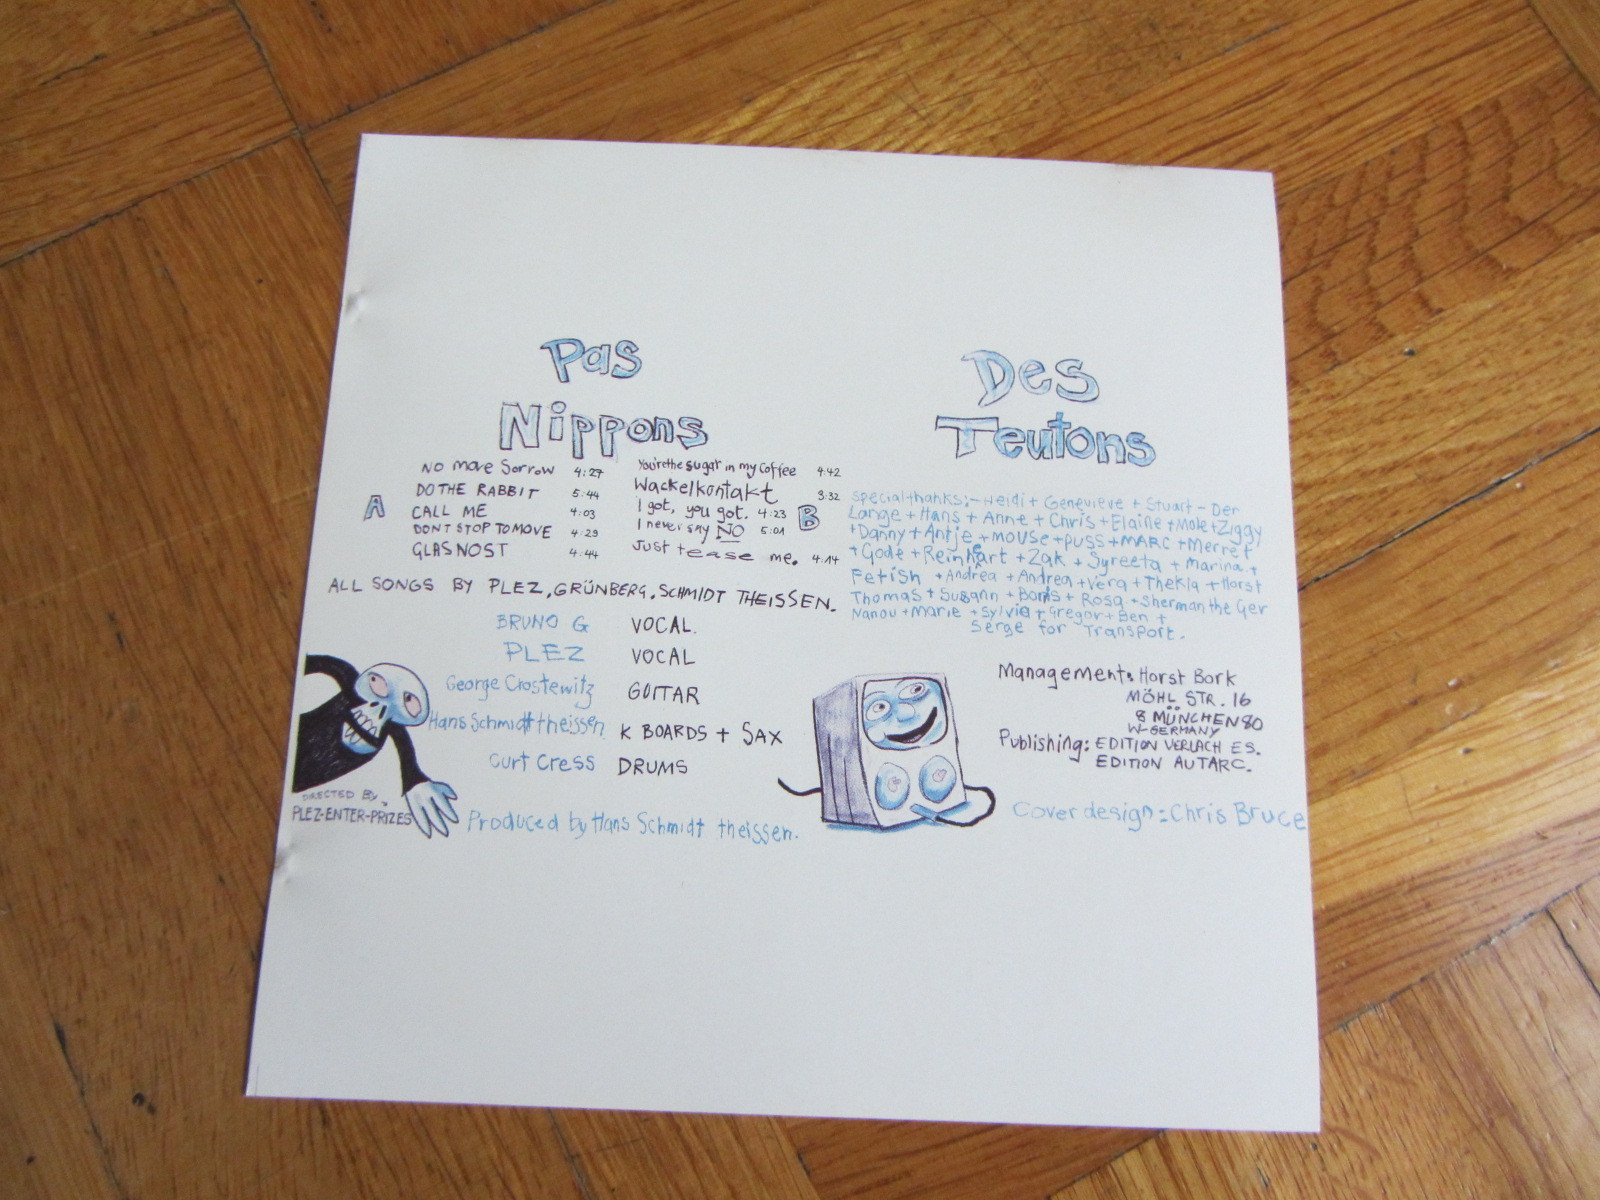 Pas
Nippons
A
No more Sorrow 4:27
DO THE RABBIT 5:44
CALL ME 4:03
DONT STOP TO MOVE 4:29
GLASNOST 4:44
B
You're the sugar in my Coffee 4:42
Wackelkontakt 3:32
I got, you got. 4:23
I never say NO 5:01
Just tease me. 4:14
ALL SONGS BY PLEZ, GRÜNBERG, SCHMIDT THEISSEN.
BRUNO G VOCAL.
PLEZ VOCAL
George Crostewitz GUITAR
Hans Schmidt theissen K BOARDS + SAX
Curt Cress DRUMS
DIRECTED BY
PLEZ-ENTER-PRIZES
Produced by Hans Schmidt theissen.
Des
Teutons
Special thanks:- Heidi + Genevieve + Stuart - Der
Lange + Hans + Anne + Chris + Elaine + Mole + Ziggy
+ Danny + Antje + MOUSE + PUSS + MARC + Merret
+ Gode + Reinhart + Zak + Syreeta + Marina +
Fetish + Andrea + Andrea + Vera + Thekla + Horst
Thomas + Susann + Boris + Rosa + Sherman the Ger
Nanou + Marie + Sylvie + Gregor + Ben +
Serge for Transport.
Management: Horst Bork
MÖHL STR. 16
8 MÜNCHEN 80
W-GERMANY
Publishing: EDITION VERLACH ES.
EDITION AUTARC.
Cover design: Chris Bruce